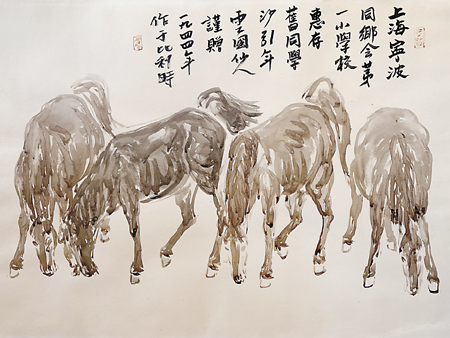 上海寧波
同鄉会第
一小學校
惠存
舊同學
沙引年
雲國仙人
謹贈
一九四四年
作于比利時